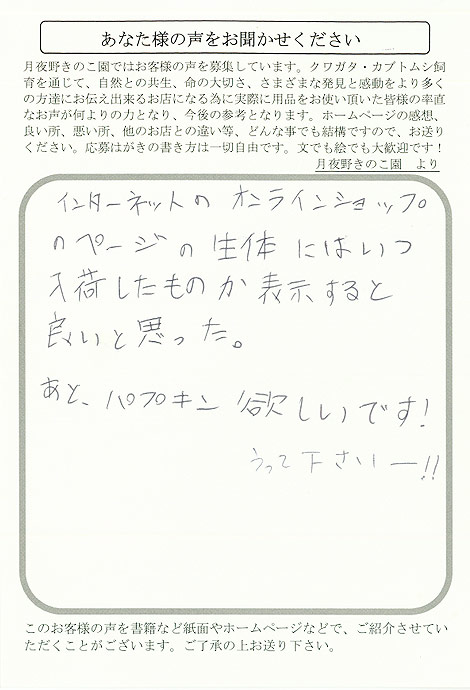 あなた様の声をお聞かせください
月夜野きのこ園ではお客様の声を募集しています。クワガタ・カブトムシ飼
育を通じて、自然との共生、命の大切さ、さまざまな発見と感動をより多く
の方達にお伝え出来るお店になる為に実際に用品をお使い頂いた皆様の率直
なお声が何よりの力となり、今後の参考となります。ホームページの感想、
良い所、悪い所、他のお店との違い等、どんな事でも結構ですので、お送り
ください。応募はがきの書き方は一切自由です。文でも絵でも大歓迎です！
月夜野きのこ園　より
インターネットの オンラインショップ
のページの 生体 にはいつ
入荷したものか 表示すると
良いと思った。
あと、パプキン 欲しいです！
うって下さいー!!
このお客様の声を書籍など紙面やホームページなどで、ご紹介させてい
ただくことがございます。ご了承の上お送り下さい。